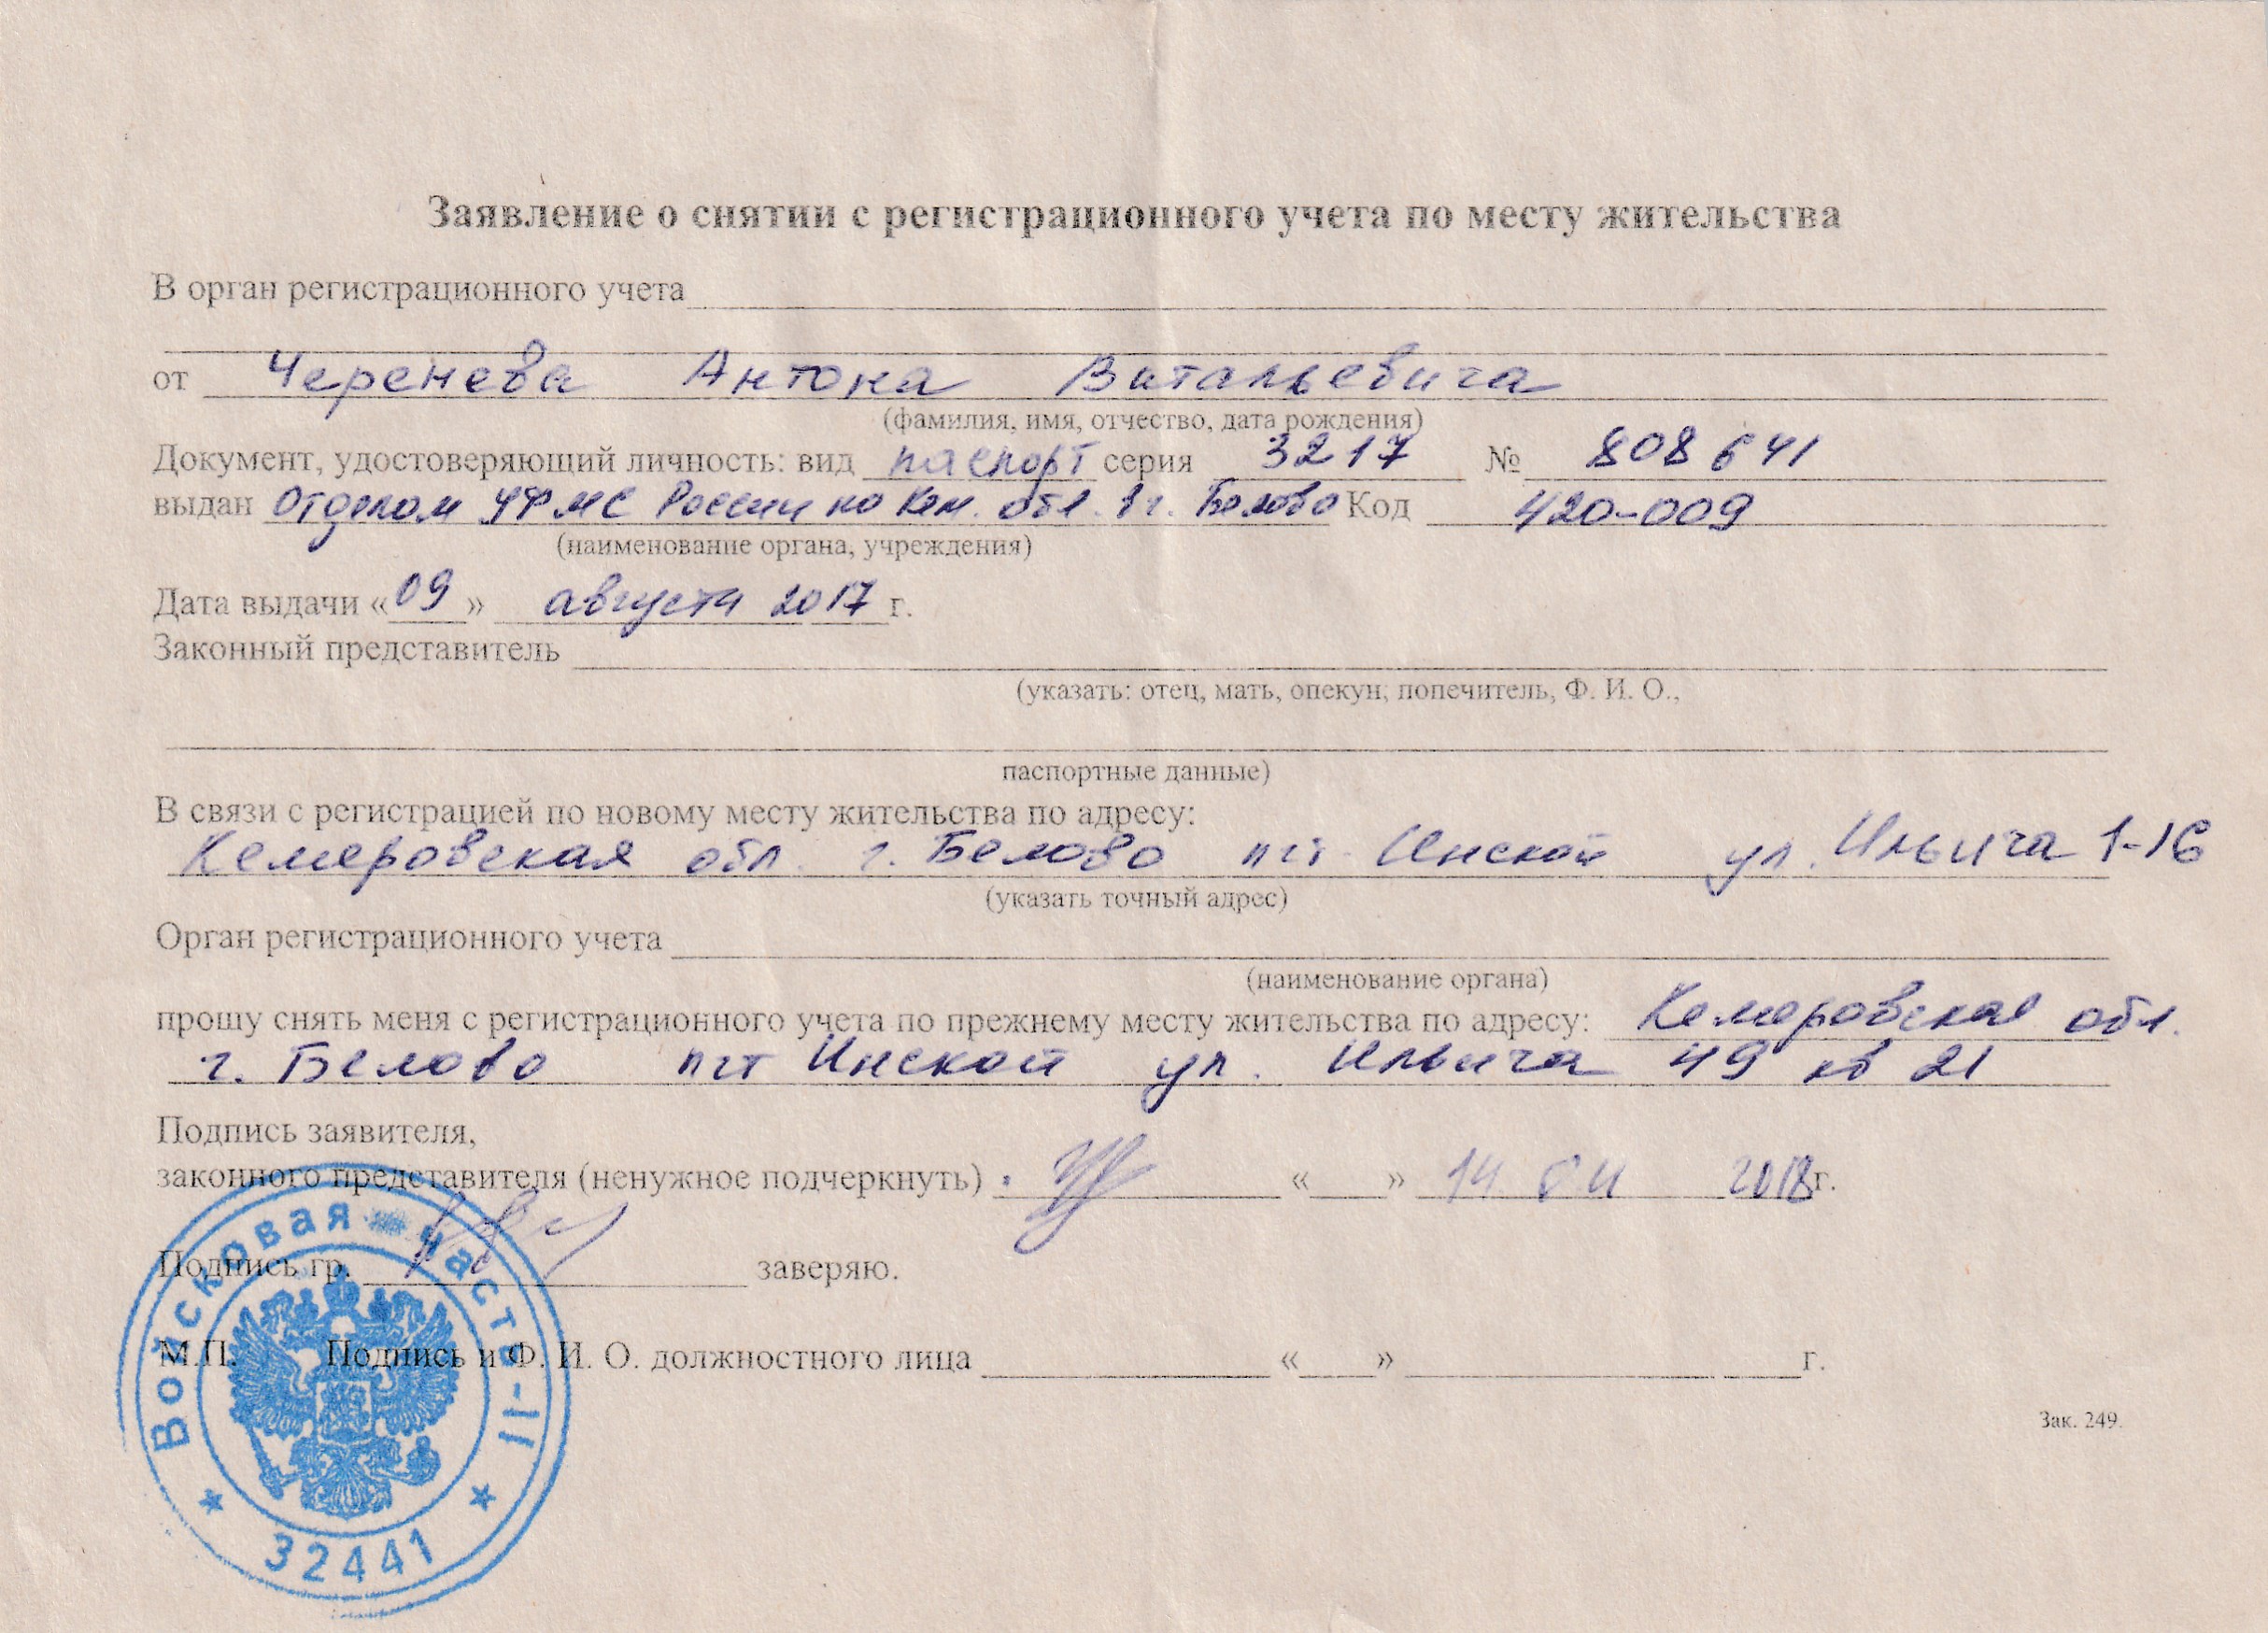 Заявление о снятии с регистрационного учета по месту жительства
В орган регистрационного учета
от Черенева Антона Витальевича
(фамилия, имя, отчество, дата рождения)
Документ, удостоверяющий личность: вид паспорт серия 3217 № 808641
выдан Отделом УФМС России по Кем. обл. в г. Белово Код 420-009
(наименование органа, учреждения)
Дата выдачи «09» августа 2017 г.
Законный представитель
(указать: отец, мать, опекун, попечитель, Ф. И. О.,
паспортные данные)
В связи с регистрацией по новому месту жительства по адресу:
Кемеровская обл. г. Белово пгт Инской ул. Ильича 1-16
(указать точный адрес)
Орган регистрационного учета
(наименование органа)
прошу снять меня с регистрационного учета по прежнему месту жительства по адресу: Кемеровская обл.
г. Белово пгт Инской ул. Ильича 49 кв 21
Подпись заявителя,
законного представителя (ненужное подчеркнуть) « » 14 2018г.
Подпись гр. заверяю.
М.П. Подпись и Ф. И. О. должностного лица « » г.
Зак. 249.
Войсковая часть-II
32441